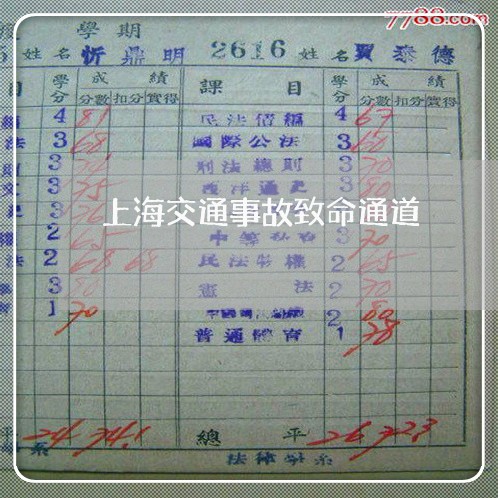 7788.com
學期
姓名 忻鼎明 2616 姓名 賈泰德
目 學分 成績 分數 扣分 實得 課目 學分 成績 分數 扣分 實得
4 81 民法債編 4 67
法 3 68 國際公法 3 60
3 刑法總則 3 70
3 75 西洋通史 3 80
上海交通事故致命通道
2 65 3 70
法 2 68 68 民法物權 2 65
3 80 憲法 2 70
1 70 2 80
普通體育 1 78
24 74.1 總平 26 72.3
系 法律學系